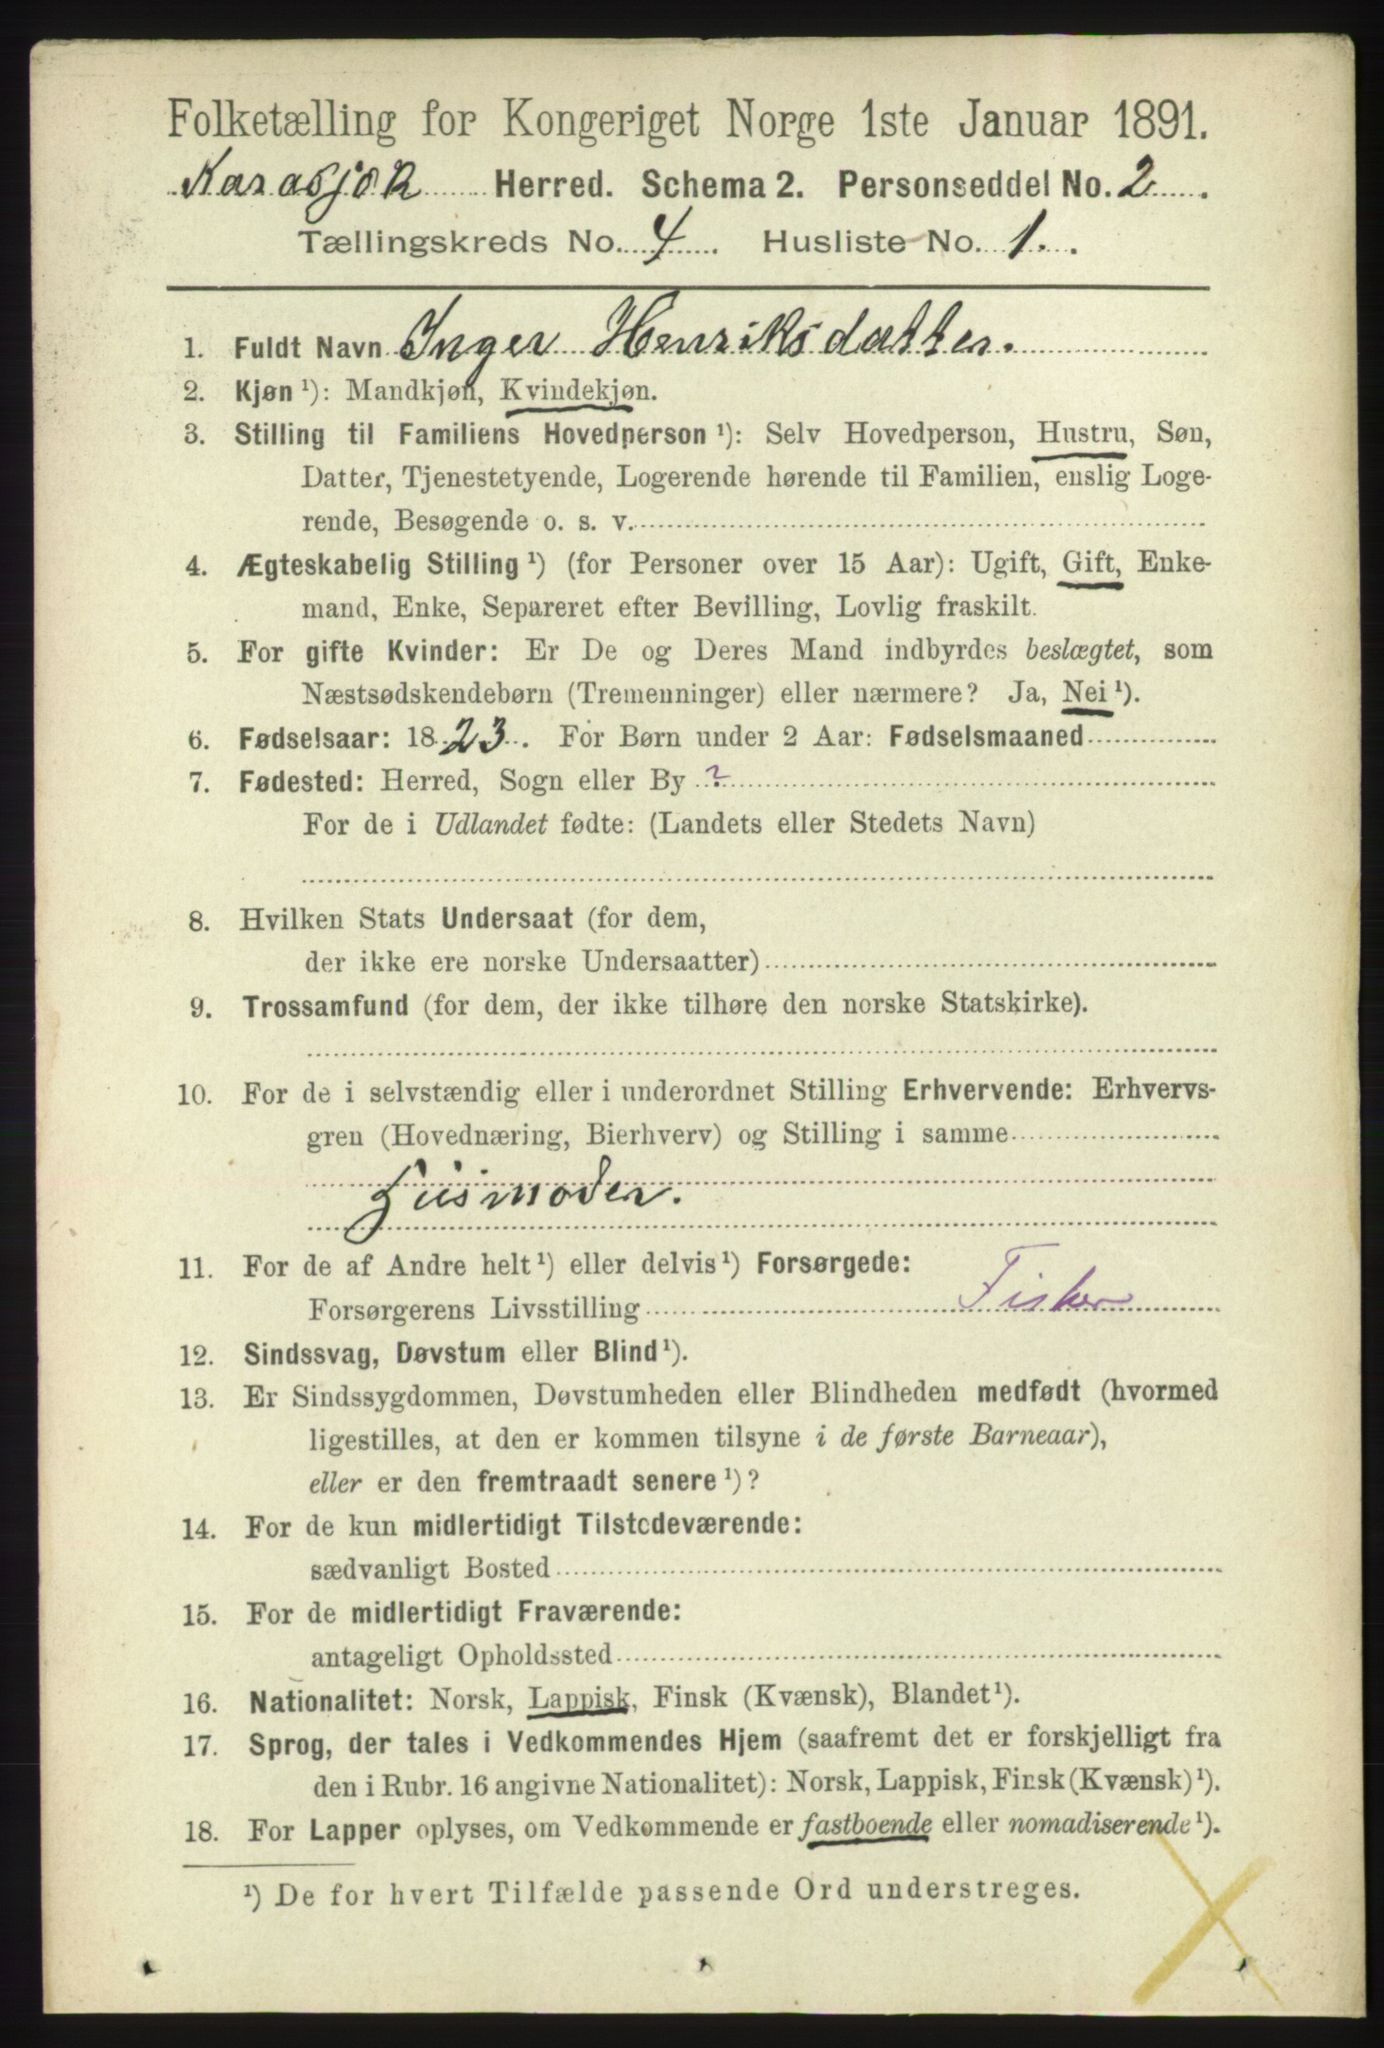 Folketælling for Kongeriget Norge 1ste Januar 1891.
Karasjok Herred. Schema 2. Personseddel No. 2
Tællingskreds No. 4 Husliste No. 1.
1. Fuldt Navn Inger Henriksdatter.
2. Kjøn ¹): Mandkjøn, Kvindekjøn.
3. Stilling til Familiens Hovedperson ¹): Selv Hovedperson, Hustru, Søn,
Datter, Tjenestetyende, Logerende hørende til Familien, enslig Loge-
rende, Besøgende o. s. v.
4. Ægteskabelig Stilling ¹) (for Personer over 15 Aar): Ugift, Gift, Enke-
mand, Enke, Separeret efter Bevilling, Lovlig fraskilt.
5. For gifte Kvinder: Er De og Deres Mand indbyrdes beslægtet, som
Næstsødskendebørn (Tremenninger) eller nærmere? Ja, Nei ¹).
6. Fødselsaar: 1823. For Børn under 2 Aar: Fødselsmaaned
7. Fødested: Herred, Sogn eller By ?
For de i Udlandet fødte: (Landets eller Stedets Navn)
8. Hvilken Stats Undersaat (for dem,
der ikke ere norske Undersaatter)
9. Trossamfund (for dem, der ikke tilhøre den norske Statskirke).
10. For de i selvstændig eller i underordnet Stilling Erhvervende: Erhvervs-
gren (Hovednæring, Bierhverv) og Stilling i samme
Husmoder.
11. For de af Andre helt ¹) eller delvis ¹) Forsørgede:
Forsørgerens Livsstilling Fisker
12. Sindssvag, Døvstum eller Blind ¹).
13. Er Sindssygdommen, Døvstumheden eller Blindheden medfødt (hvormed
ligestilles, at den er kommen tilsyne i de første Barneaar),
eller er den fremtraadt senere ¹)?
14. For de kun midlertidigt Tilstedeværende:
sædvanligt Bosted
15. For de midlertidigt Fraværende:
antageligt Opholdssted
16. Nationalitet: Norsk, Lappisk, Finsk (Kvænsk), Blandet ¹).
17. Sprog, der tales i Vedkommendes Hjem (saafremt det er forskjelligt fra
den i Rubr. 16 angivne Nationalitet): Norsk, Lappisk, Finsk (Kvænsk) ¹).
18. For Lapper oplyses, om Vedkommende er fastboende eller nomadiserende ¹).
¹) De for hvert Tilfælde passende Ord understreges.